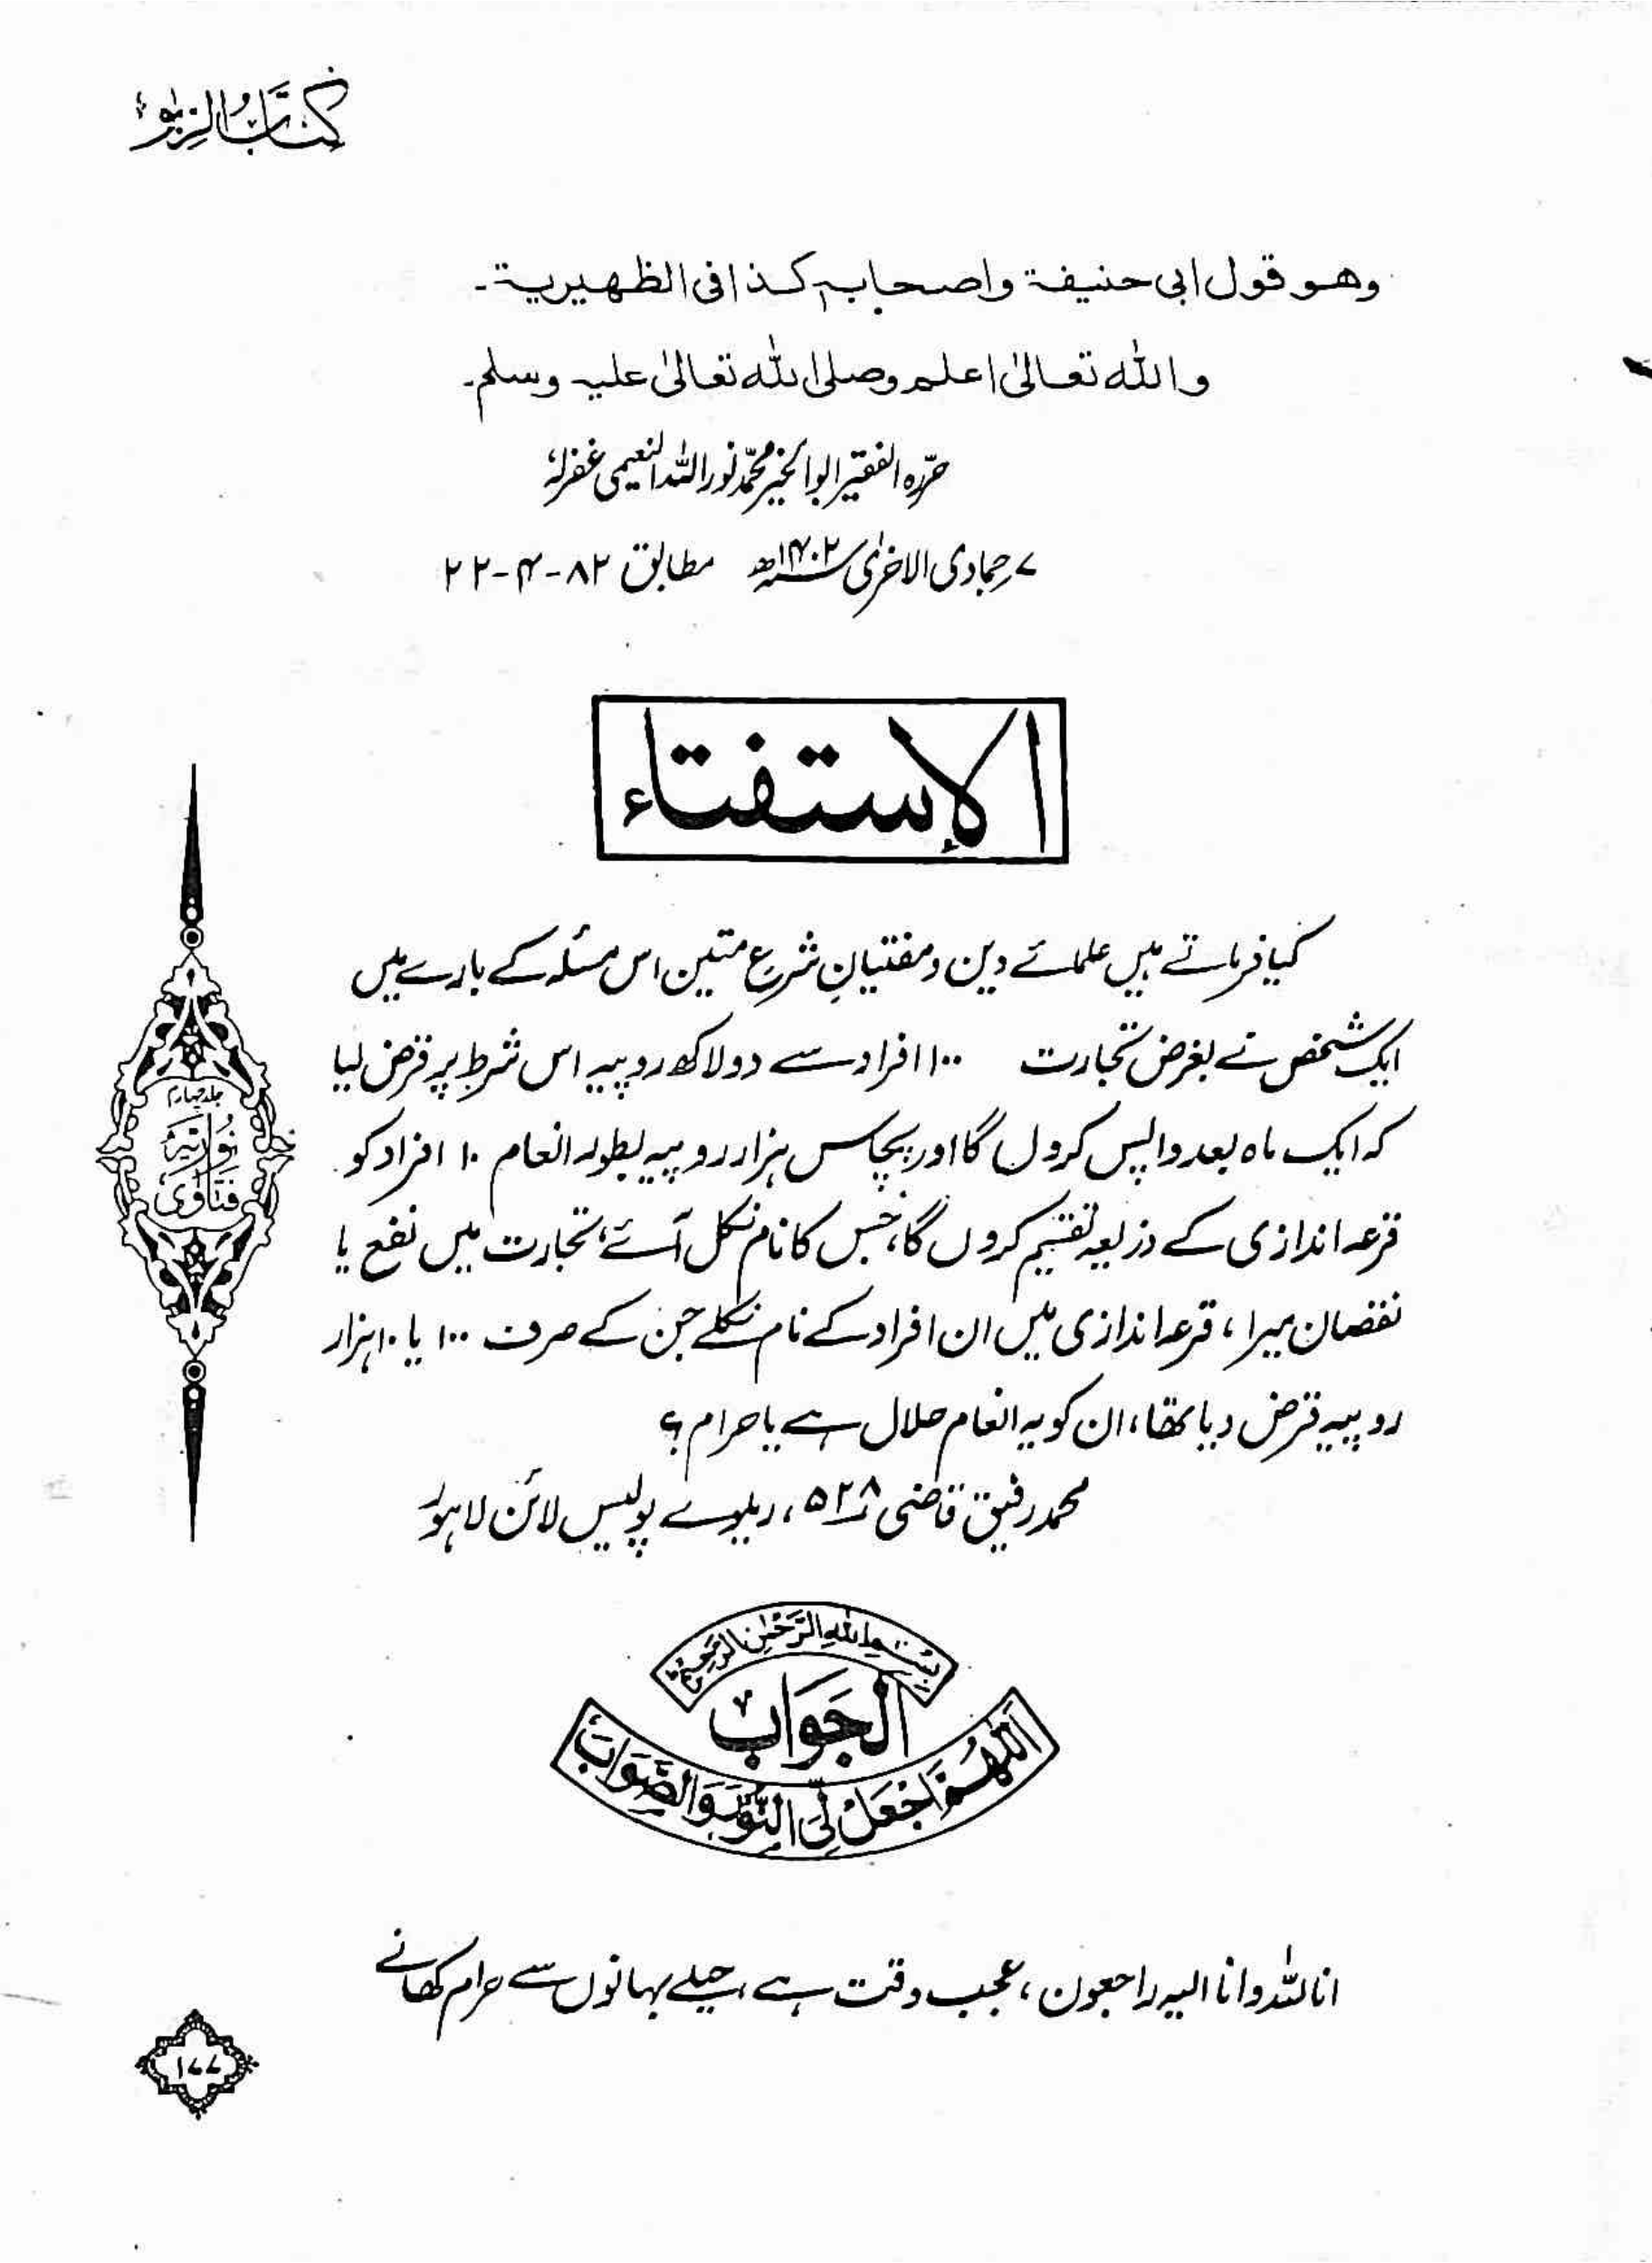 کتاب الربٰوۃ
وھو قول ابی حنیفۃ واصحابہ کذا فی الظھیریۃ۔
واللہ تعالیٰ اعلم وصلی اللہ تعالیٰ علیہ وسلم۔
حررہ الفقیر ابوالخیر محمد نور اللہ النعیمی غفرلہٗ
۷؍جمادی الاخرٰی ۱۴۰۲ھ مطابق ۸۲-۴-۲۲
الإستفتاء
کیا فرماتے ہیں علمائے دین و مفتیانِ شرع متین اس مسئلہ کے بارے میں
ایک شخص نے بغرض تجارت ۱۰۰ افراد سے دو لاکھ روپیہ اس شرط پر قرض لیا
کہ ایک ماہ بعد واپس کروں گا اور پچاس ہزار روپیہ بطور انعام ۱۰ افراد کو
قرعہ اندازی کے ذریعہ تقسیم کروں گا، جس کا نام نکل آئے، تجارت میں نفع یا
نقصان میرا، قرعہ اندازی میں ان افراد کے نام نکلے جن کے صرف ۱۰۰ یا ۱۰ ہزار
روپیہ قرض دیا تھا، ان کو یہ انعام حلال ہے یا حرام؟
محمد رفیق قاضی ۵۲۸، ریلوے پولیس لائن لاہور
جلد چہارم
فتاوی نوریہ
بسم اللہ الرحمٰن الرحیم
الجَوَاب
اللهم اجْعَلْ لِّیَ النُّوْرَ وَالصَّوَابَ
انا للہ وانا الیہ راجعون، عجب وقت ہے، حیلے بہانوں سے حرام کھانے
۱۷۷